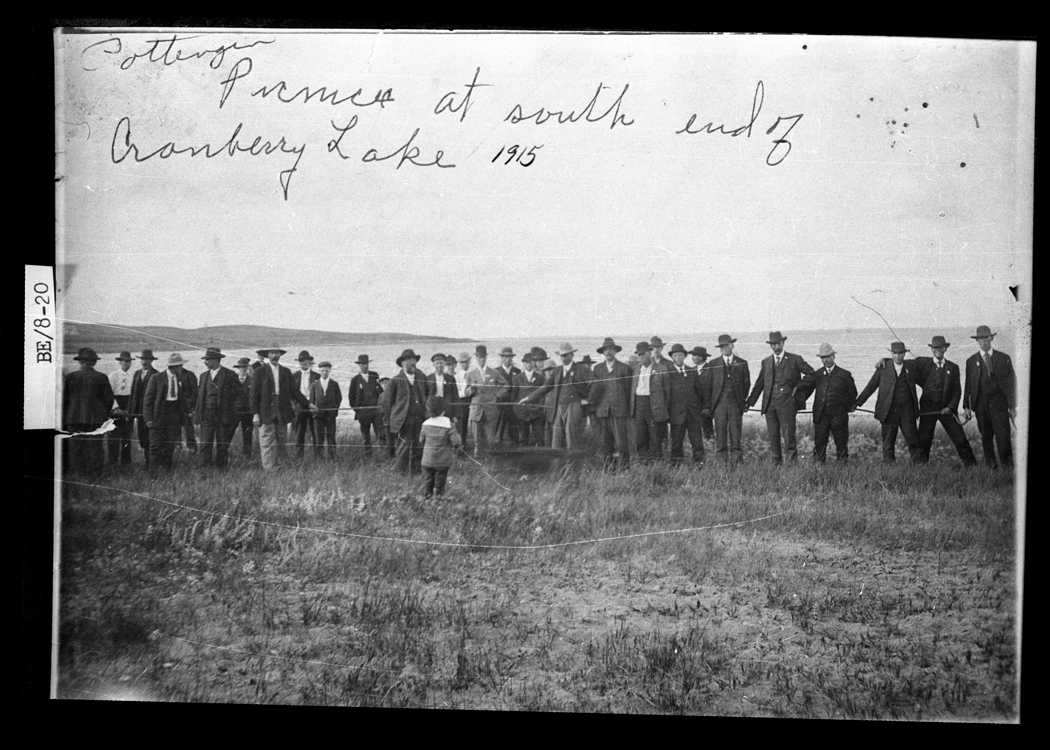 Pottenger
Picnic at south end of
Cranberry Lake 1915
BE/8-20